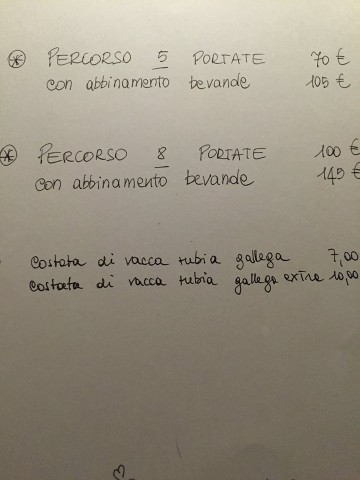 * PERCORSO 5 PORTATE 70 €
con abbinamento bevande 105 €
* PERCORSO 8 PORTATE 100 €
con abbinamento bevande 145 €
costata di vacca rubia gallega 7,00
costata di vacca rubia gallega extra 10,00